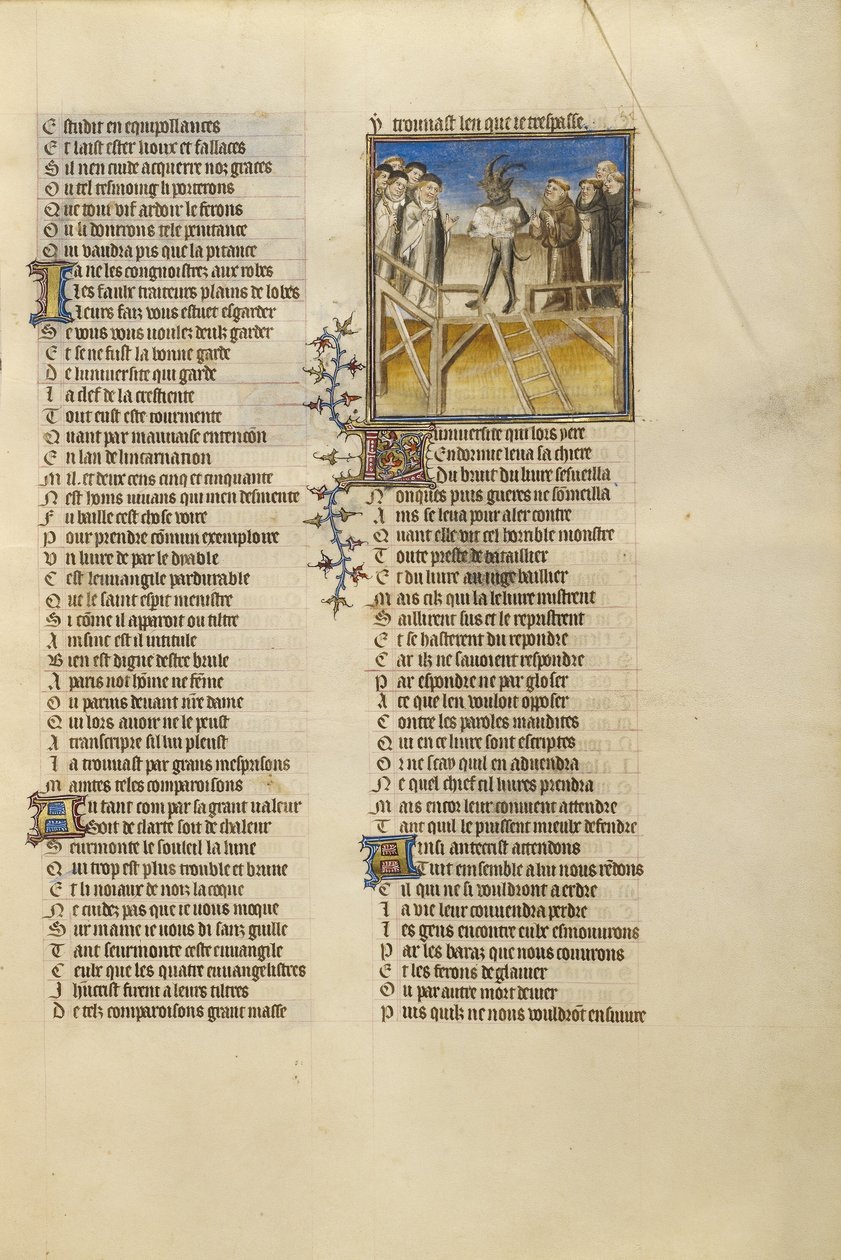 Estudit en equipollances
Et laist ester lioux et fallaces
Sil nen cuide acquerre noz graces
Ou tel tesmoing li porterons
Que tout vif ardoir le ferons
Ou li donrrons tele penitance
Qui vaudra pis que la pitance
Ia ne les congnoistrez aux robes
Les faulx traiteurs plains de lobes
Leurs faiz vous estuet esgarder
Se vous vous voulez deulz garder
Et se ne fust la bonne garde
De luniuersite qui garde
La clef de la crestiente
Tout eust este tourmente
Quant par mauuaise entencōn
En lan de lincarnation
Mil. et deux cens cinq et cinquante
Nest homs viuans qui men desmente
Fu baille cest chose voire
Pour prendre cōmun exemploire
Vn liure de par le dyable
Cest leuuangile pardurable
Que le saint esp̄it menistre
Si cōme il apparoit ou tiltre
Ainsinc est il intitule
Bien est digne destre brule
A paris not hōme ne fēme
Ou paruis deuant nr̄e dame
Qui lors auoir ne le peust
A transcripre sil lui pleust
La trouuast par grans mesprisons
Maintes teles comparoisons
Autant com par sa grant valeur
Soit de clarte soit de chaleur
Seurmonte le souleil la lune
Qui trop est plus trouble et brune
Et li noiaux de noiz la coque
Ne cuidez pas que ie vous moque
Sur mame ie vous di sanz guille
Tant seurmonte ceste euuangile
Ceulx que les quatre euuangelistres
Jhūcrist firent a leurs tiltres
De telz comparoisons grant masse
Y trouuast len que ie trespasse
Luniuersite qui lors yere
Endormie leua sa chiere
Du bruit du liure sesueilla
Nonques puis gueres ne sōmeilla
Ains se leua pour aler contre
Quant elle vit cel horrible monstre
Toute preste de bataillier
Et du liure au iuge baillier
Mais cilz qui la le liure mistrent
Saillirent sus et le repristrent
Et se hasterent du repondre
Car ilz ne sauoient respondre
Par espondre ne par gloser
A ce que len vouloit opposer
Contre les paroles maudites
Qui en ce liure sont escriptes
Or ne scay quil en aduendra
Ne quel chief cil liures prendra
Mais encor leur conuient attendre
Tant quil le puissent mieulx defendre
Ainsi antecrist attendons
Tuit emsemble a lui nous rēdons
Cil qui ne si vouldront aerdre
La vie leur conuendra perdre
Les gens encontre eulx esmouurons
Par les baraz que nous couurons
Et les ferons deglauier
Ou par autre mort deuier
Puis quilz ne nous vouldrōt ensuiure